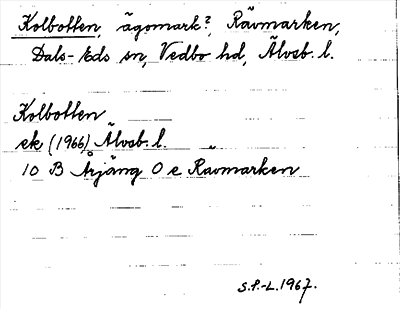 Kolbotten, ägomark?, Rävmarken,
Dals-Eds sn, Vedbo hd, Älvsb. l.
Kolbotten
ek (1966) Älvsb. l.
10 B Årjäng O e Rävmarken
S.P.-L. 1967.